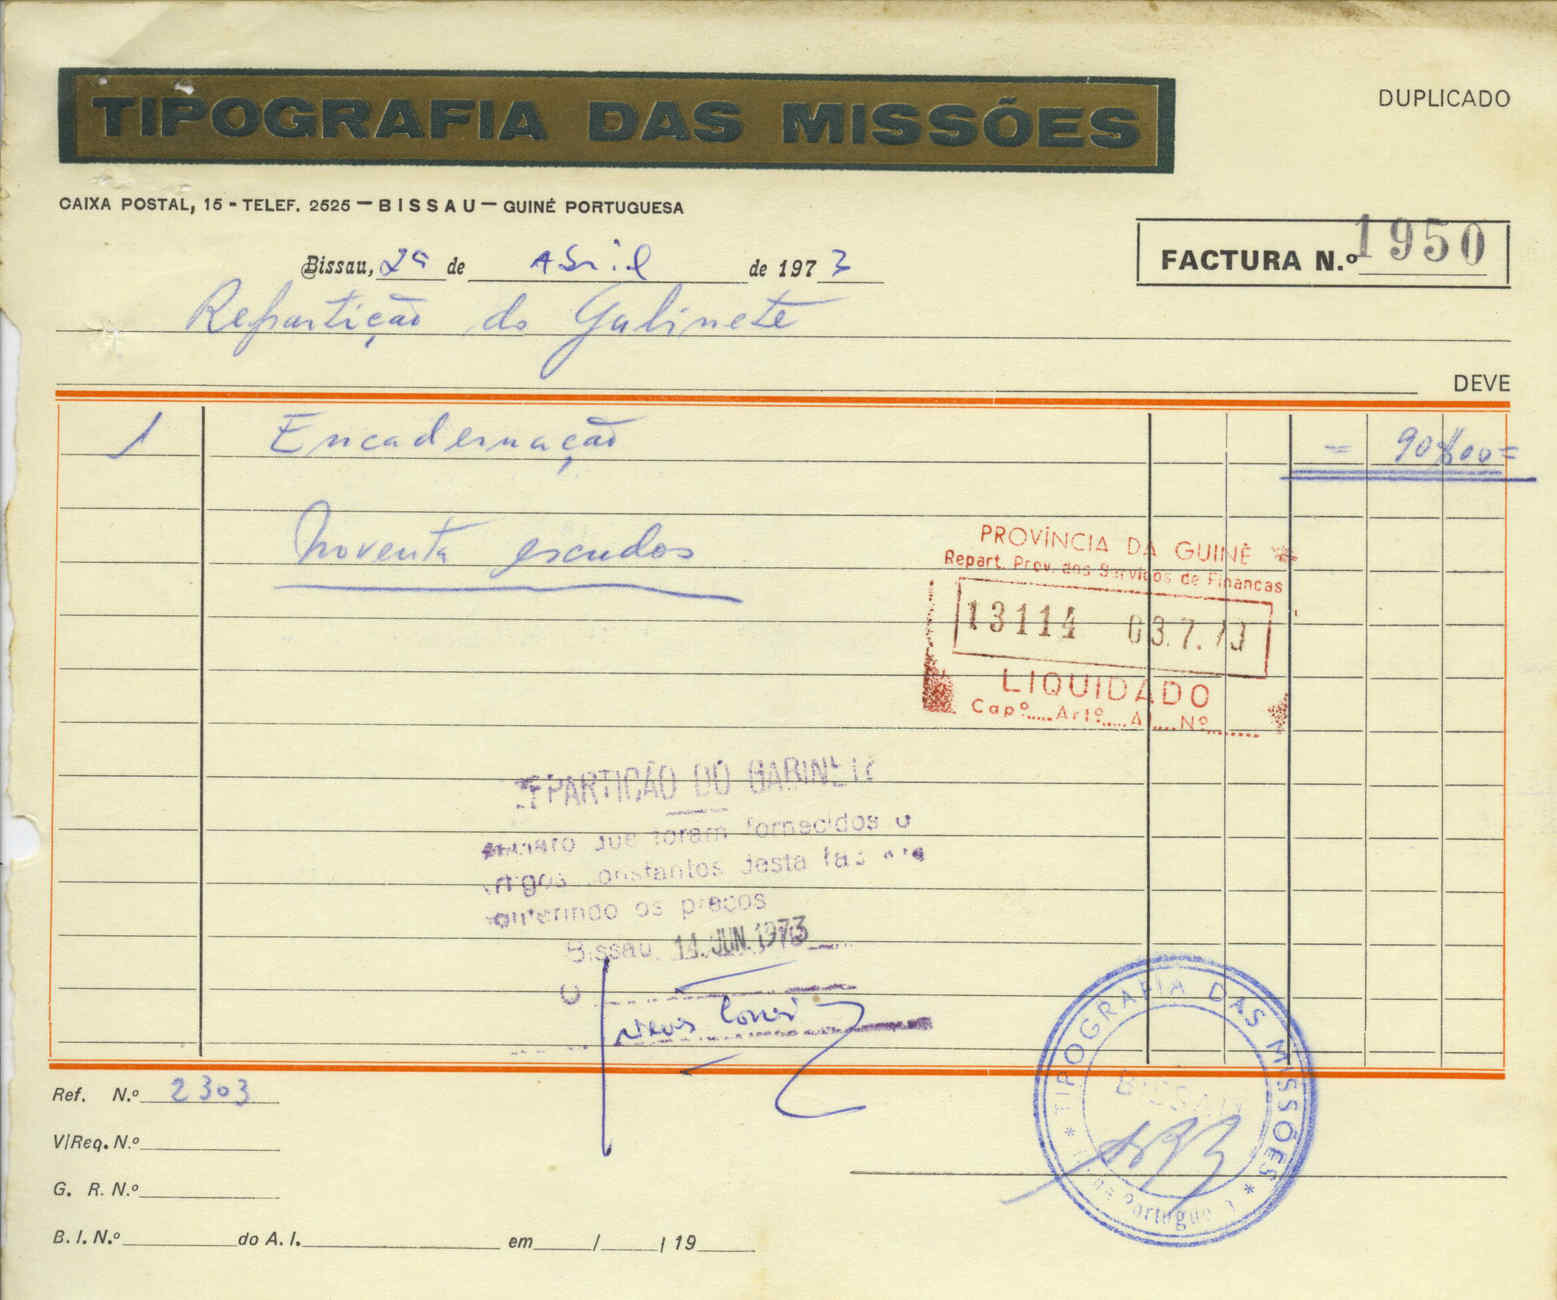 TIPOGRAFIA DAS MISSÕES
DUPLICADO
CAIXA POSTAL, 15 - TELEF. 2525 — BISSAU — GUINÉ PORTUGUESA
FACTURA N.º 1950
Bissau, de Abril de 1973
Repartição do Gabinete
DEVE
1 Encadernação = 90$00=
Noventa escudos
PROVÍNCIA DA GUINÉ
Repart. Prov. dos Serviços de Finanças
13114 03.7.73
LIQUIDADO
Capº..... Artº..... Al..... Nº.......
REPARTIÇÃO DO GABINETE
que foram fornecidos o
artigos constantes desta
conferindo os preços
Bissau, 14. JUN. 1973
O
TIPOGRAFIA DAS MISSÕES
BISSAU
Ref. N.º 2303
V/Req. N.º
G. R. N.º
B. I. N.º do A. I. em / / 19